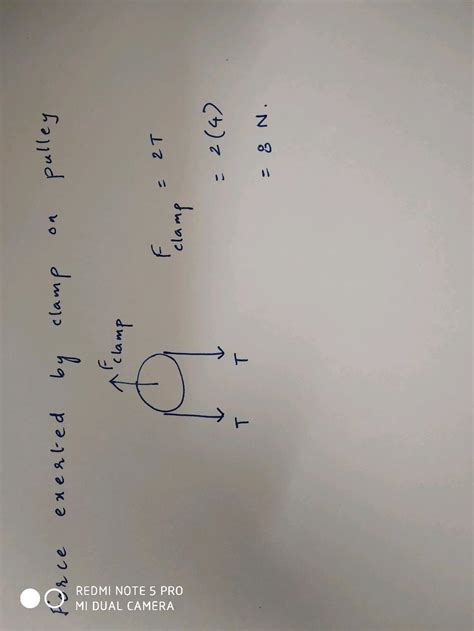 Force exerted by clamp on pulley
F clamp
T
T
F clamp = 2T
= 2(4)
= 8 N.
REDMI NOTE 5 PRO
MI DUAL CAMERA